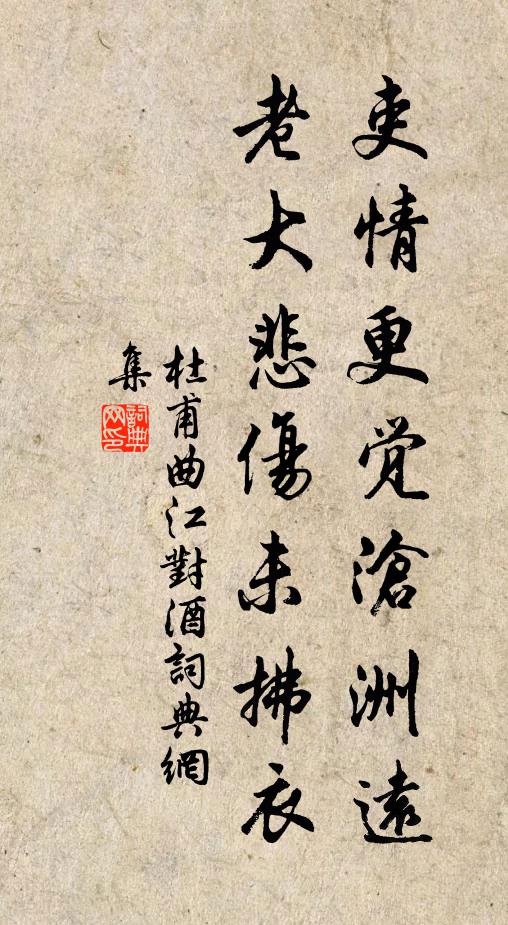 吏情更觉滄洲遠
老大悲傷未拂衣
杜甫曲江對酒詞典網
集
詞典
网印